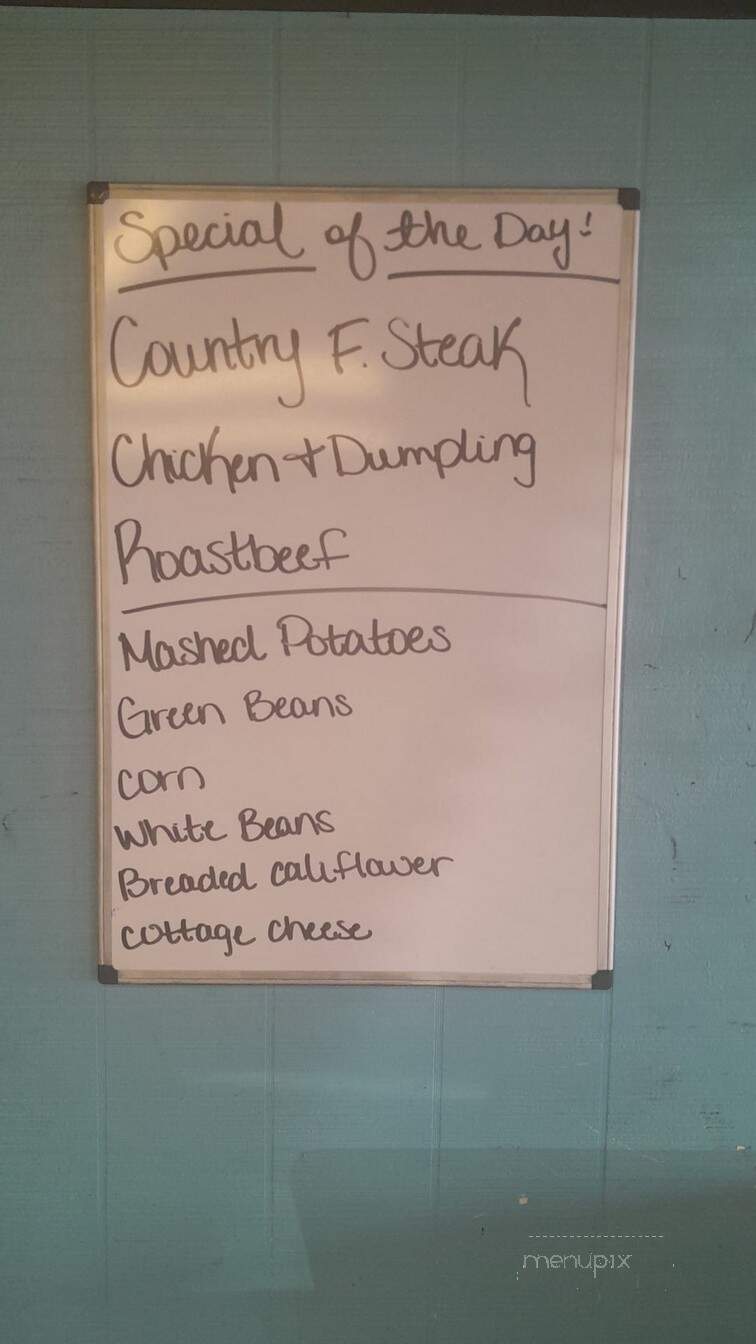 Special of the Day!
Country F. Steak
Chicken + Dumpling
Roastbeef
Mashed Potatoes
Green Beans
corn
White Beans
Breaded califlower
cottage cheese
menupix